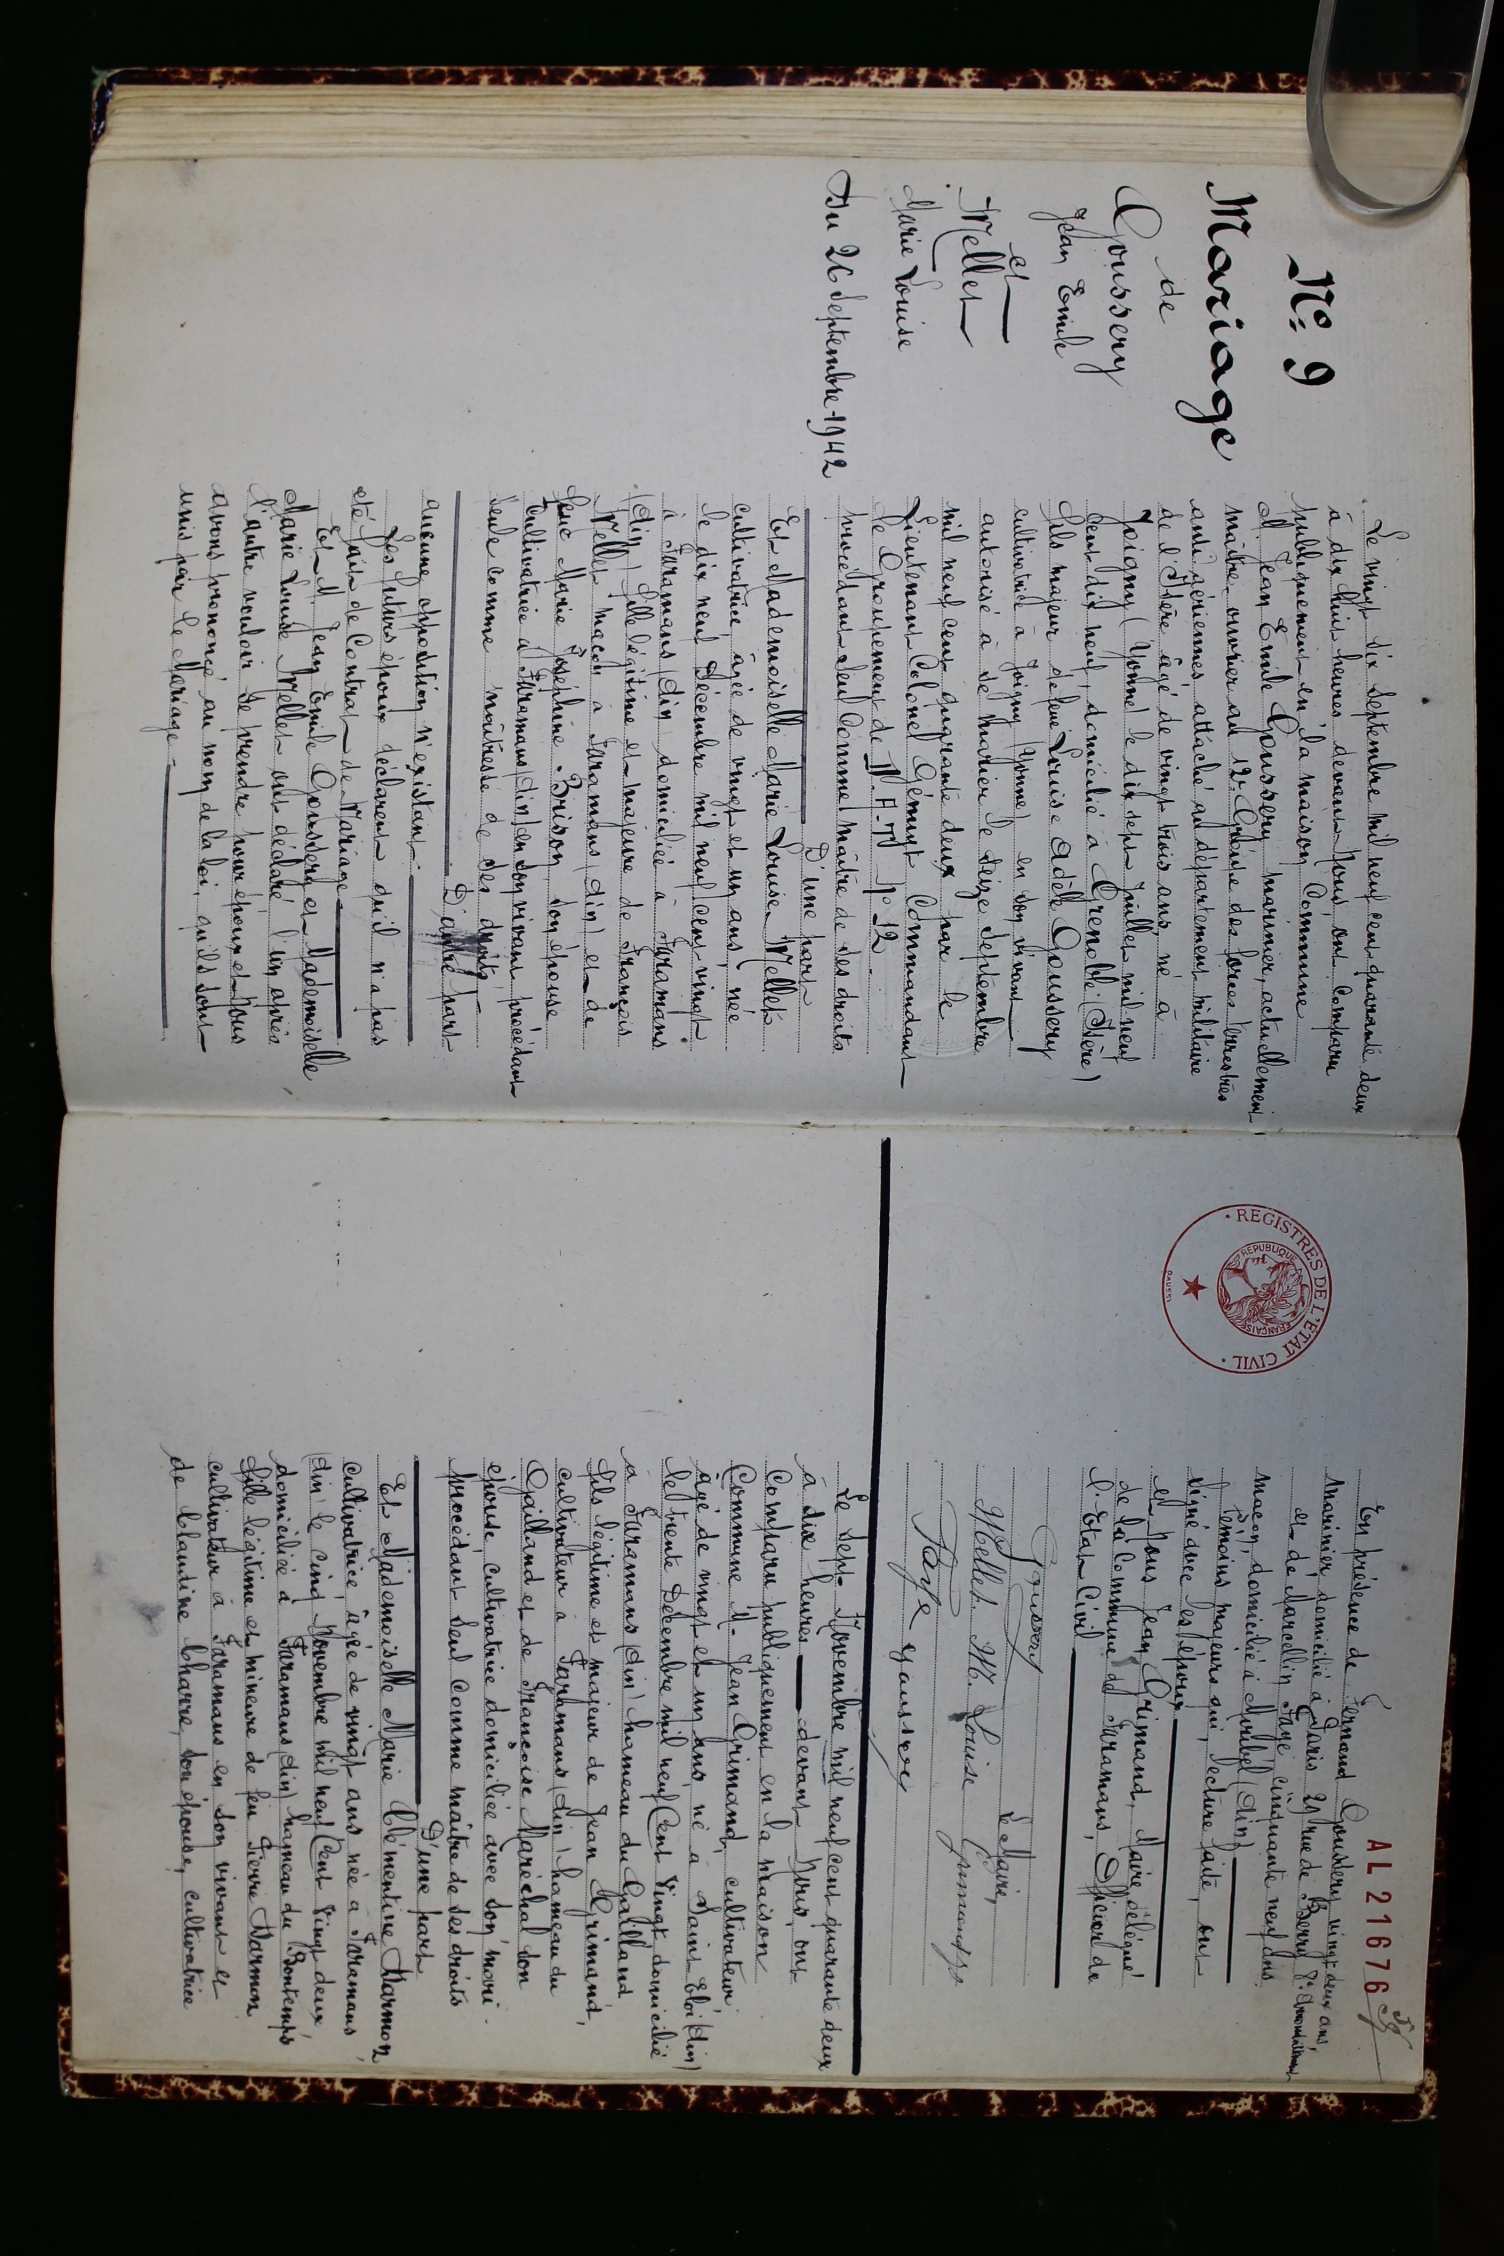 N° 9
Mariage
de
Goussery
Jean Emile
et
Mellet
Marie Louise
Du 26 Septembre 1942
Le vingt six Septembre mil neuf cent quarante deux
à dix huit heures devant Nous, ont Comparu
publiquement en la maison Commune
M. Jean Emile Goussery marinier, actuellement
maître ouvrier au 12e Groupe des forces terrestres
anti aériennes attaché au département militaire
de l'Isère âgé de vingt trois ans, né à
Joigny (Yonne) le dix sept juillet mil neuf
cent dix neuf, domicilié à Grenoble (Isère)
fils majeur de feue Louise Adèle Goussery
cultivatrice à Joigny (Yonne) en son vivant
autorisé à se marier le seize Septembre
mil neuf cent quarante deux par le
Lieutenant Colonel Commandant
le Groupement de N° 12
procédant seul comme maître de ses droits
D'une part
Et Mademoiselle Marie Louise Mellet
cultivatrice, âgée de vingt et un ans, née
le dix neuf Décembre mil neuf cent vingt
à Faramans (Ain) domiciliée à Faramans
(Ain) fille légitime et majeure de François
Mellet maçon à Faramans (Ain) et de
feue Marie Joséphine Brison son épouse
cultivatrice à Faramans (Ain) en son vivant procédant
seule comme maîtresse de ses droits,
D'autre part
aucune opposition n'existant.
Les futurs époux déclarent qu'il n'a pas
été fait de Contrat de Mariage
Et M. Jean Emile Goussery et Mademoiselle
Marie Louise Mellet ont déclaré l'un après
l'autre vouloir se prendre pour époux et Nous
avons prononcé au nom de la loi, qu'ils sont
unis par le Mariage.
AL 21676
REGISTRES DE L'ETAT CIVIL
REPUBLIQUE FRANÇAISE
En présence de Fernand Goussery vingt deux ans,
Marinier domicilié à Paris 29 rue de Berry 8e Arrondissement
et de Marcellin Faye cinquante neuf ans
maçon, domicilié à (Ain)
Témoins majeurs qui, lecture faite, ont
signé avec les époux
et Nous Jean Grimand, Maire délégué
de la Commune de Faramans, Officier de
l'Etat Civil
Goussery
Mellet M. Louise
Le Maire,
Faye
Le Sept Novembre mil neuf cent quarante deux
à dix heures devant Nous, ont
Comparu publiquement en la maison
Commune M. Jean Grimand, cultivateur,
âgé de vingt et un ans, né à Saint Eloi (Ain)
le trente Décembre mil neuf Cent Vingt, domicilié
à Faramans (Ain) hameau du Gailland
fils légitime et majeur de Jean Grimand,
cultivateur à Faramans (Ain) hameau du
Gailland et de Françoise Maréchal son
épouse, cultivatrice domiciliée avec son mari.
procédant seul Comme maître de ses droits
D'une part
Et Mademoiselle Marie Clémentine Marmon
cultivatrice âgée de vingt ans née à Faramans,
(Ain) le cinq Novembre mil neuf Cent Vingt deux,
domiciliée à Faramans (Ain) hameau du Bontemps
fille légitime et mineure de feu Pierre Marmon
cultivateur à Faramans en son vivant et
de Claudine Charre, son épouse, cultivatrice